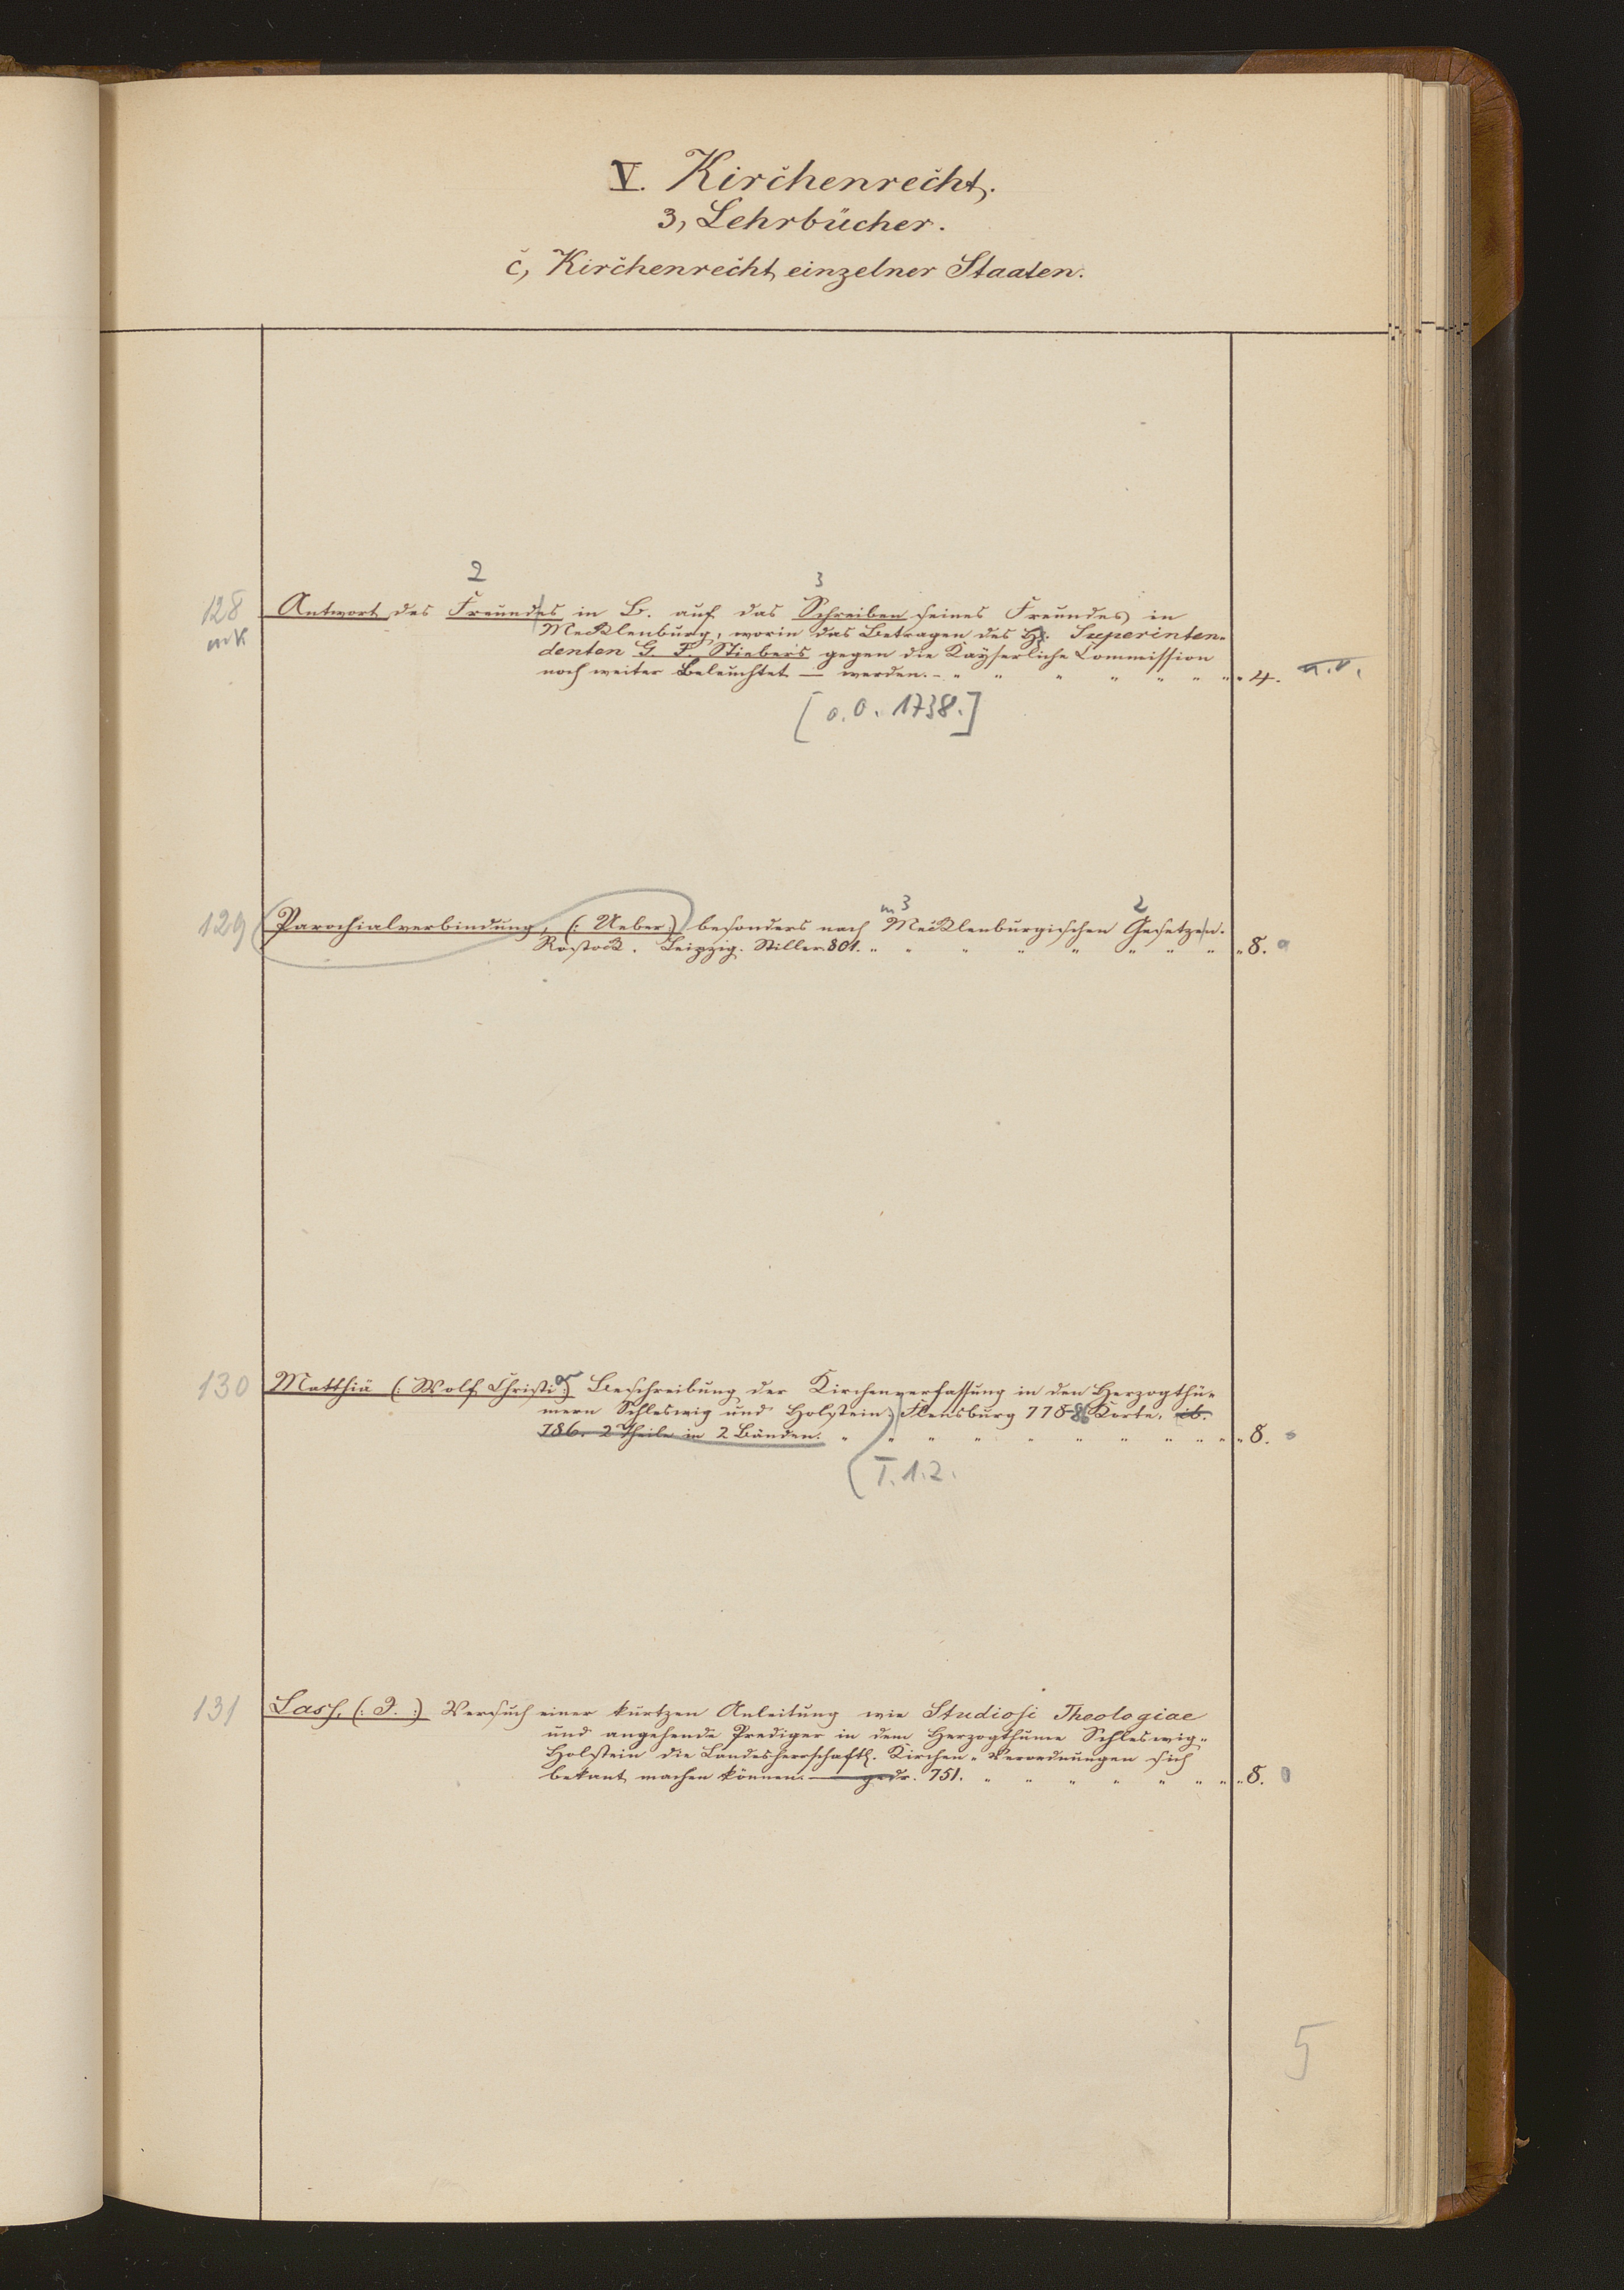 V. Kirchenrecht.
3, Lehrbücher.
c, Kirchenrecht einzelner Staaten.
2 3
128 Antwort des Freundes in B. auf das Schreiben seines Freundes in
Mecklenburg, worin das Betragen des H. Superinten-
denten G. F. Stieber's gegen die Kayserliche Commission
noch weiter Beleuchtet — werden. 4.
[o. O. 1738.]
m3 2
129 Parochialverbindung, (: Ueber :) besonders nach Mecklenburgischen Gesetzen.
Rostock. Leipzig. Stiller 801. 8.
130 Matthiä (: Wolf Christi :) Beschreibung der Kirchenverfassung in den Herzogthü-
mern Schleswig und Holstein. Flensburg 778-86 Korte. ib.
786. 2 Theile in 2 Bänden. 8.
T. 1. 2.
131 Lass, (: J. :) Versuch einer kurtzen Anleitung wie Studiosi Theologiae
und angehende Prediger in dem Herzogthume Schleswig-
Holstein die Landesherrschaftl. Kirchen-Verordnungen sich
bekant machen können. — gedr. 751. 8.
5